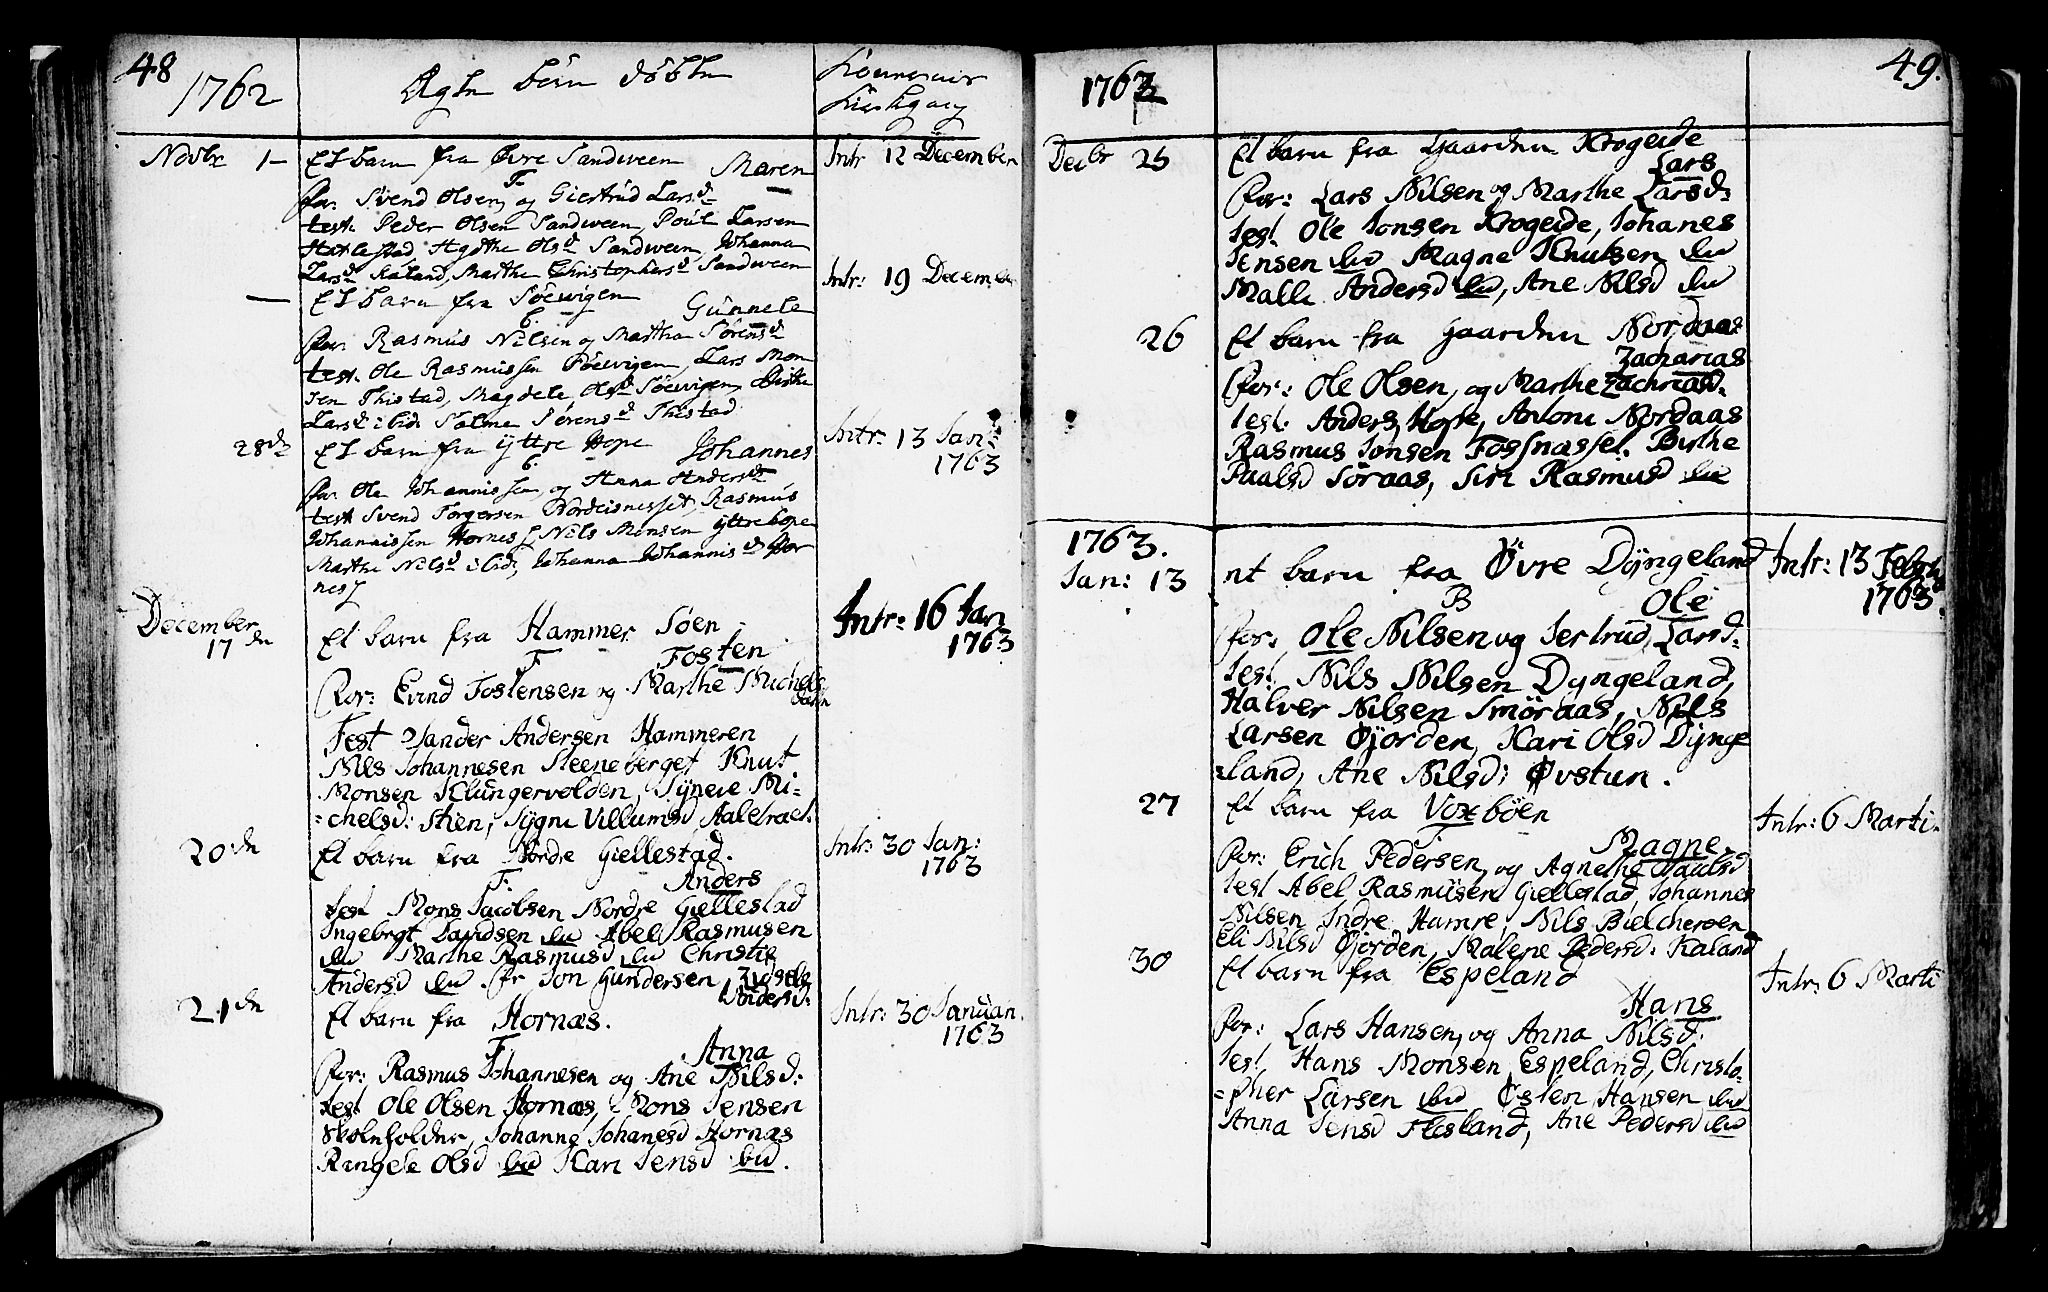 48
1762
Ægte børn døbte
Kirkegang
Novbr 1
Et barn fra Øvre Sandween
Maren
Intr 12 December
F.
For: Svend Olsen, og Giertrud Larsd
test. Peder Olsen Sandween, Poul Larsen
Hatlestad, Olsd Sandween, Johanna
Larsd Raland, Marthe Christophersd Sandween
Intr: 19 December
Et barn fra Söewigen
Gunnele
For: Rasmus Nilsen og Martha Sörensd
test. Ole Rasmussen Söevigen, Lars Mon
sen Thistad, Magdele Olsd Söevigen, Birthe
Larsd ibid: Salme Sörensd Thistad
28de
Et barn fra yttre Hope
Johannes
Intr: 13 Jan:
1763
For Ole Johannissen, og Anna Andersd
test Svend Torgersen Nordeisnesset, Rasmus
Johannissen Hornes, Nils Monsen yttre hope
Marthe Nilsd ibid, Johanna Johannisd Hor
nes
December
17 dn
Et barn fra Hammer Søen
Intr: 16 Jan
1763
F
Fosten
For: Evind Fostensen og Marthe Michels
datn
Test Sander Andersen Hammeren
Nils Johannesen Steeneberget Knut
Monsen Klungervolden, Syneve Mi-
=chelsd: Stien, Sygni Villumsd Aalstræt:
20 dn
Et barn fra Nordre Giellestad.
Intr: 30 Jan:
1763
F:
Anders
test Mons Jacobsen Nordre Giellestad
Ingebrgt Davidsen ibid Abel Rasmusen
ibid Marthe Rasmusd ibid Christie
Andersd ibid. fr Jon Gundersen,
Andersd:
21 dn
Et barn fra Hornæs.
Intr: 30 Januari.
1763
F:
Anna
For: Rasmus Johannesen og Ane Nilsd:
test Ole Olsen Hornæs, Mons Jensen
Skoleholder, Johanne Johanesd Hornæs
Ringele Olsd ibid Kari Jensd ibid.
49.
1763
Decbr 25
Et barn fra Gaarden Krogeide
Lars
For: Lars Nilsen og Marthe Larsd:
test. Ole Jonsen Krogeide, Johanes
Jensen ibid Magne Knutsen ibid
Malli Andersd ibid, Ane Nilsd ibid
26
Et barn fra Gaarden Nordaas
Zacharias
For: Ole Olsen, og Marthe Zachriasd.
test: Anders Hope, Antoni Nordaas
Rasmus Jonsen Fossnasset. Birthe
Paalsd Söraas, Siri Rasmusd ibid
1763.
Jan: 13
nt barn fra Øvre Dÿngeland
Intr: 13 Febr:
1763.
B
Ole
For: Ole Nilsen og Jertrud, Larsd:
test. Nils Nilsen Dyngeland,
Halver Nilsen Smöraas, Nils
Larsen Øjorden, Kari Olsd Dÿnge
=land, Ane Nilsd: Øvstun.
27
Et barn fra Voxböen
Intr: 6 Marti.
F.
Magne
For: Erich Pedersen, og Agnethe Paulsd
test Abel Rasmusen Giellestad, Johannes
Nilsen Indre Hamre, Nils Bielcheröen
Eli Nilsd Øjorden, Malene Pedersd: Kaland
30
Et barn fra Espeland
Intr: 6 Marti
Hans
For: Lars Hansen, og Anna Nilsd:
test. Hans Monsen Espeland, Christo-
=pher Larsen ibid Østen Hansen ibid
Anna Jensd Flesland, Ane Pedersd ibid